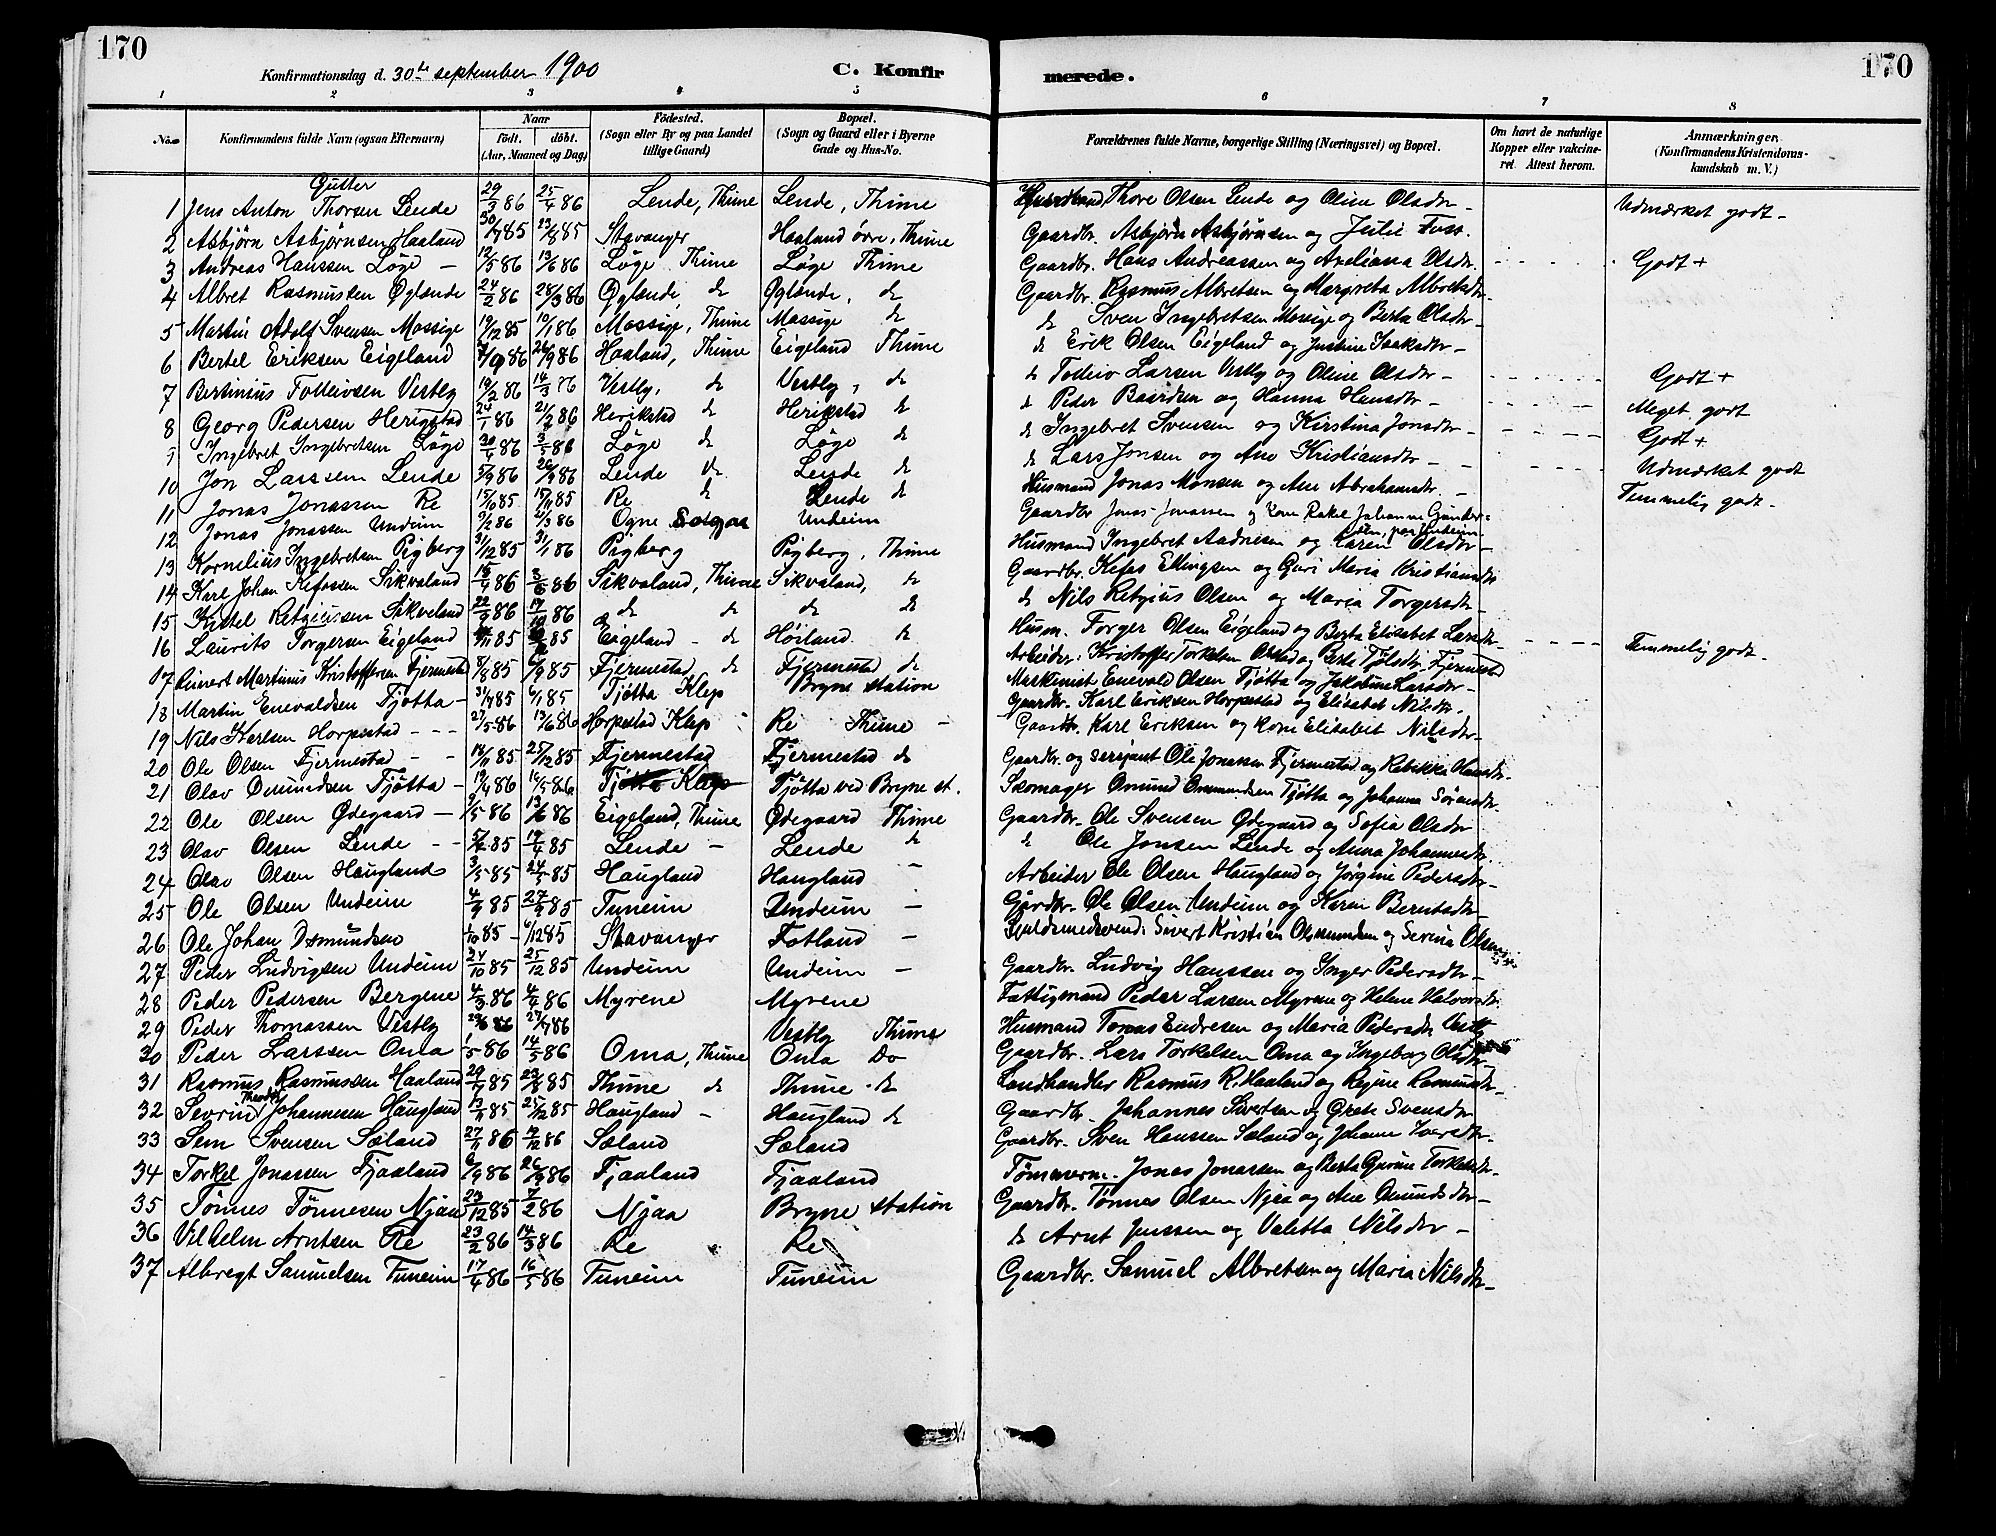 170
170
Konfirmationsdag d. 30te september 1900
C. Konfirmerede.
1 2 3 4 5 6 7 8
No.
Konfirmandens fulde Navn (ogsaa Efternavn)
Naar
født. døbt.
(Aar, Maaned og Dag)
Fødested.
(Sogn eller By og paa Landet
tillige Gaard)
Bopæl.
(Sogn og Gaard eller i Byerne
Gade og Hus-No.
Forældrenes fulde Navne, borgerlige Stilling (Næringsvei) og Bopæl.
Om havt de naturlige
Kopper eller vakcine-
ret. Attest herom.
Anmærkninger.
(Konfirmandens Kristendoms-
kundskab m. V.)
Gutter
1 Jens Anton Thorsen Lende 29/3 86 25/4 86 Lende, Thime Lende, Thime Thore Olsen Lende og Oline Olsdtr Udmærket godt
2 Asbjørn Asbjørnsen Haaland 30/7 85 23/8 85 Stavanger Haaland øvre, Thime Gaardbr. Asbjørn Asbjørnsen og Julie Foss.
3 Andreas Hanssen Løge 12/5 86 13/6 86 Løge Thime Løge Thime Gaardbr. Hans Andreassen og Axeliana Olsdtr. Godt+
4 Albret Rasmussen Øglende 24/2 86 28/3 86 Øglænde, do Øglænde, do Gaardbr. Rasmus Albretsen og Margreta Albretsdtr
5 Martin Adolf Svensen Mossige 19/12 85 10/1 86 Mossige, Thime Mossige do do Sven Ingebretsen Mossige og Berta Olsdtr
6 Bertel Eriksen Eigeland /9 86 26/9 86 Haaland, Thime Eigeland Thime do Erik Olsen Eigeland og Justine Isaksdtr
7 Bertinius Tolleivsen Vestly 19/2 86 14/3 86 Vestly, do Vestly, do do Tolleiv Larsen Vestly og Oline Olsdtr Godt+
8 Georg Pedersen Herigstad 24/1 86 21/2 86 Herikstad do Herikstad do do Peder Baardsen og Hanna Hansdtr Meget godt
9 Ingebret Ingebretsen Løge 30/ 86 3/5 86 Løge do Løge do do Ingebret Svensen og Kirstina Jonsdtr Godt+
10 Jon Larssen Lende 5/9 86 26/9 86 Lende do Lende do do Lars Jonsen og Ane Kristiansdtr Udmærket godt
11 Jonas Jonassen Re 15/10 85 15/11 85 Re do Lende do Husmand Jonas Monsen og Ane Abrahamsdtr. Temmelig godt
12 Jonas Jonassen Undeim 9/2 86 21/3 86 Ogne Sogn Undeim Gaardbr Jonas Jonassen og Kone Rakel Johanne Gunder-
13 Kornelius Ingebretsen Pigberg 31/12 85 31/1 86 Pigberg Pigberg, Thime Husmand Ingebret Aadnesen og Karen Olsdtr
14 Karl Johan Kefassen Sikvaland 15/4 86 3/6 86 Sikvaland, Thime Sikvaland, do Gaardbr. Kefas Ellingsen og Guri Maria Kristiansdtr
15 Kittel Retziussen Sikveland 22/9 86 17/10 86 do do do do do Nils Retzius Olsen og Maria Torgersdtr
16 Laurits Torgersen Eigeland /11 85 85 Eigeland do Høiland do Husm. Torger Olsen Eigeland og Berta Elisabet Larsdtr Temmelig godt
17 Reinert Martinius Kristoffersen Fjermestad 8/8 85 6/9 85 Fjermestad do Fjermestad do Arbeider: Kristoffer Torkelsen Obstad og Berta Tjølsdtr. Fjermestad
18 Martin Enevaldsen Tjøtta 31/7 85 6/ 85 Tjøtta Klep Bryne station Maskinist Enevald Olsen Tjøtta og Jakobine Larsdtr
Gaardbr. Karl Eriksen Horpestad og Elisabet Nilsdtr.
19 Nils Karlsen Horpestad 27/5 86 13/6 86 Horpestad Klep Re Thime Gaardbr. Karl Eriksen og Kone Elisabet Nilsdtr
20 Ole Olsen Fjermestad 18/11 85 25/12 85 Fjermestad Fjermestad do Gaardbr. og Serrjant Ole Jonassen Fjermestad og Rebekka Hansdtr
21 Olav Omundsen Tjøtta 19/4 86 16/5 86 Tjøtta Klep Tjøtta ved Bryne st. Skomager Omund Ommundsen Tjøtta og Johanna Sørensdtr.
22 Ole Olsen Ødegaard 9/5 86 13/6 86 Eigeland, Thime Ødegaard Thime Gaardbr. Ole Svensen Ødegaard og Sofia Olsdtr
23 Olav Olsen Lende 85 19/4 85 Lende Lende do do Ole Jonsen Lende og Anna Johannesdtr.
24 Olav Olsen Hauglands 3/5 85 24/5 85 Haugland Haugland Arbeider Ole Olsen Haugland og Jørgine Pedersdtr
25 Ole Olsen Undeim 4/9 85 27/9 85 Tuneim Undeim Gårdbr. Ole Olsen Undeim og Karen Berntsdtr
26 Ole Johan Osmundsen 1/10 85 6/12 85 Stavanger Fotland Guldsmedsvend. Sivert Kristian Osmundsen og Serina Olsen
27 Peder Ludvigsen Undeim 24/10 85 25/12 85 Undeim Undeim Gaardbr. Ludvig Hanssen og Inger Pedersdtr
28 Peder Pedersen Bergene 4/3 86 4/4 86 Myrene Myrene Fattigmand Peder Larsen Myrene og Helene Halvorsdtr
29 Peder Thomassen Vestly 86 27/7 86 Vestly Thime Husmand Tomas Endresen og Maria Pedersdtr. Vestly
30 Peder Larssen Oma 1/5 86 14/5 86 Oma, Thime Oma Do Gaardbr. Lars Torkelsen Oma og Ingeborg Olsdtr
31 Rasmus Rasmussen Haaland 29/7 85 23/8 85 Thime do Thime do Landhandler Rasmus R. Haaland og Regine Rasmusdtr
32 Severin Johannesen Haugland 13/11 85 25/12 85 Haugland Haugland do Gaardbr. Johannes Sivertsen og Grete Svensdtr
33 Sem Svensen Sæland 27/11 86 12/12 86 Sæland Sæland Gaardbr. Sven Hanssen Sæland og Johanne Iversdtr
34 Torkel Jonassen Fjaaland 6/9 86 26/9 86 Fjaaland Fjaaland Tømmerm. Jonas Jonassen og Berta Gurine Torkelsdtr
35 Tønnes Tønnesen Njaa 23/12 85 7/2 86 Njaa Bryne station Gaardbr. Tønnes Olsen Njaa og Ane Omundsdtr
36 Vilhelm Arntsen Re 23/2 86 14/3 86 Re Re do Arnt Jenssen og Valetta Nilsdtr
37 Albregt Samuelsen Tuneim 17/4 86 16/5 86 Tuneim Tuneim Gaardbr. Samuel Albretsen og Maria Nilsdtr